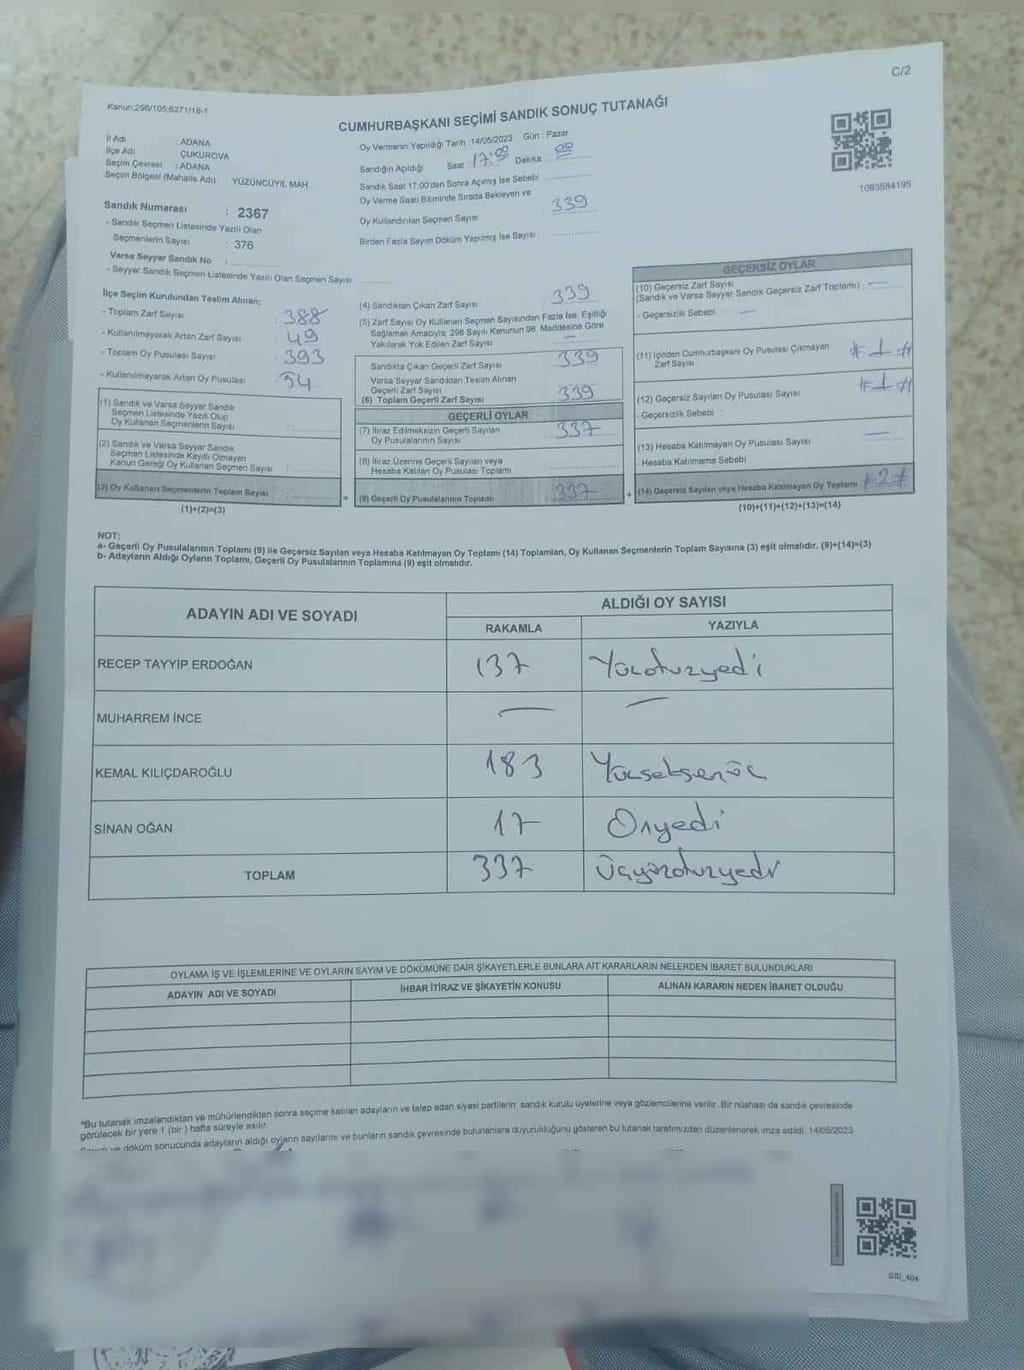 C/2
Kanun:298/105;6271/18-1
CUMHURBAŞKANI SEÇİMİ SANDIK SONUÇ TUTANAĞI
İl Adı : ADANA
İlçe Adı : ÇUKUROVA
Seçim Çevresi : ADANA
Seçim Bölgesi (Mahalle Adı) : YÜZÜNCÜYIL MAH.
Sandık Numarası : 2367
- Sandık Seçmen Listesinde Yazılı Olan
Seçmenlerin Sayısı : 376
Varsa Seyyar Sandık No :
- Seyyar Sandık Seçmen Listesinde Yazılı Olan Seçmen Sayısı:
Oy Vermenin Yapıldığı Tarih :14/05/2023 Gün : Pazar
Sandığın Açıldığı Saat 17:00 Dakika 00
Sandık Saat 17:00'den Sonra Açımış İse Sebebi
Oy Verme Saati Bitiminde Sırada Bekleyen ve
Oy Kullandırılan Seçmen Sayısı 339
Birden Fazla Sayım Döküm Yapılmış İse Sayısı
1093584195
İlçe Seçim Kurulundan Teslim Alınan;
- Toplam Zarf Sayısı : 388
- Kullanılmayarak Artan Zarf Sayısı : 49
- Toplam Oy Pusulası Sayısı : 393
- Kullanılmayarak Artan Oy Pusulası : 54
(1) Sandık ve Varsa Seyyar Sandık
Seçmen Listesinde Yazılı Olup
Oy Kullanan Seçmenlerin Sayısı
(2) Sandık ve Varsa Seyyar Sandık
Seçmen Listesinde Kayıtlı Olmayan
Kanun Gereği Oy Kullanan Seçmen Sayısı
(3) Oy Kullanan Seçmenlerin Toplam Sayısı
(1)+(2)=(3)
(4) Sandıktan Çıkan Zarf Sayısı 339
(5) Zarf Sayısı Oy Kullanan Seçmen Sayısından Fazla İse, Eşitliği
Sağlamak Amacıyla; 298 Sayılı Kanunun 98. Maddesine Göre
Yakılarak Yok Edilen Zarf Sayısı —
Sandıkta Çıkan Geçerli Zarf Sayısı 339
Varsa Seyyar Sandıktan Teslim Alınan
Geçerli Zarf Sayısı
(6) Toplam Geçerli Zarf Sayısı 339
GEÇERLİ OYLAR
(7) İtiraz Edilmeksizin Geçerli Sayılan
Oy Pusulalarının Sayısı 337
(8) İtiraz Üzerine Geçerli Sayılan veya
Hesaba Katılan Oy Pusulası Toplamı
=
(9) Geçerli Oy Pusulalarının Toplamı 337
GEÇERSİZ OYLAR
(10) Geçersiz Zarf Sayısı
(Sandık ve Varsa Seyyar Sandık Geçersiz Zarf Toplamı) : —
- Geçersizlik Sebebi : —
(11) İçinden Cumhurbaşkanı Oy Pusulası Çıkmayan
Zarf Sayısı # 1 #
(12) Geçersiz Sayılan Oy Pusulası Sayısı # 1 #
- Geçersizlik Sebebi :
(13) Hesaba Katılmayan Oy Pusulası Sayısı —
- Hesaba Katılmama Sebebi
+
(14) Geçersiz Sayılan veya Hesaba Katılmayan Oy Toplamı # 2 #
(10)+(11)+(12)+(13)=(14)
NOT:
a- Geçerli Oy Pusulalarının Toplamı (9) ile Geçersiz Sayılan veya Hesaba Katılmayan Oy Toplamı (14) Toplamları, Oy Kullanan Seçmenlerin Toplam Sayısına (3) eşit olmalıdır. (9)+(14)=(3)
b- Adayların Aldığı Oyların Toplamı, Geçerli Oy Pusulalarının Toplamına (9) eşit olmalıdır.
ADAYIN ADI VE SOYADI
ALDIĞI OY SAYISI
RAKAMLA YAZIYLA
RECEP TAYYİP ERDOĞAN 137 Yüzotuzyedi
MUHARREM İNCE — —
KEMAL KILIÇDAROĞLU 183 Yüzseksenüç
SİNAN OĞAN 17 Onyedi
TOPLAM 337 Üçyüzotuzyedi
OYLAMA İŞ VE İŞLEMLERİNE VE OYLARIN SAYIM VE DÖKÜMÜNE DAİR ŞİKAYETLERLE BUNLARA AİT KARARLARIN NELERDEN İBARET BULUNDUKLARI
ADAYIN ADI VE SOYADI İHBAR İTİRAZ VE ŞİKAYETİN KONUSU ALINAN KARARIN NEDEN İBARET OLDUĞU
"Bu tutanak imzalandıktan ve mühürlendikten sonra seçime katılan adayların ve talep eden siyasi partilerin sandık kurulu üyelerine veya gözlemcilerine verilir .Bir nüshası da sandık çevresinde
görülecek bir yere 1 (bir ) hafta süreyle asılır.
döküm sonucunda adayların aldığı oyların sayılarını ve bunların sandık çevresinde bulunanlara duyurulduğunu gösteren bu tutanak tarafımızdan düzenlenerek imza edildi. 14/05/2023